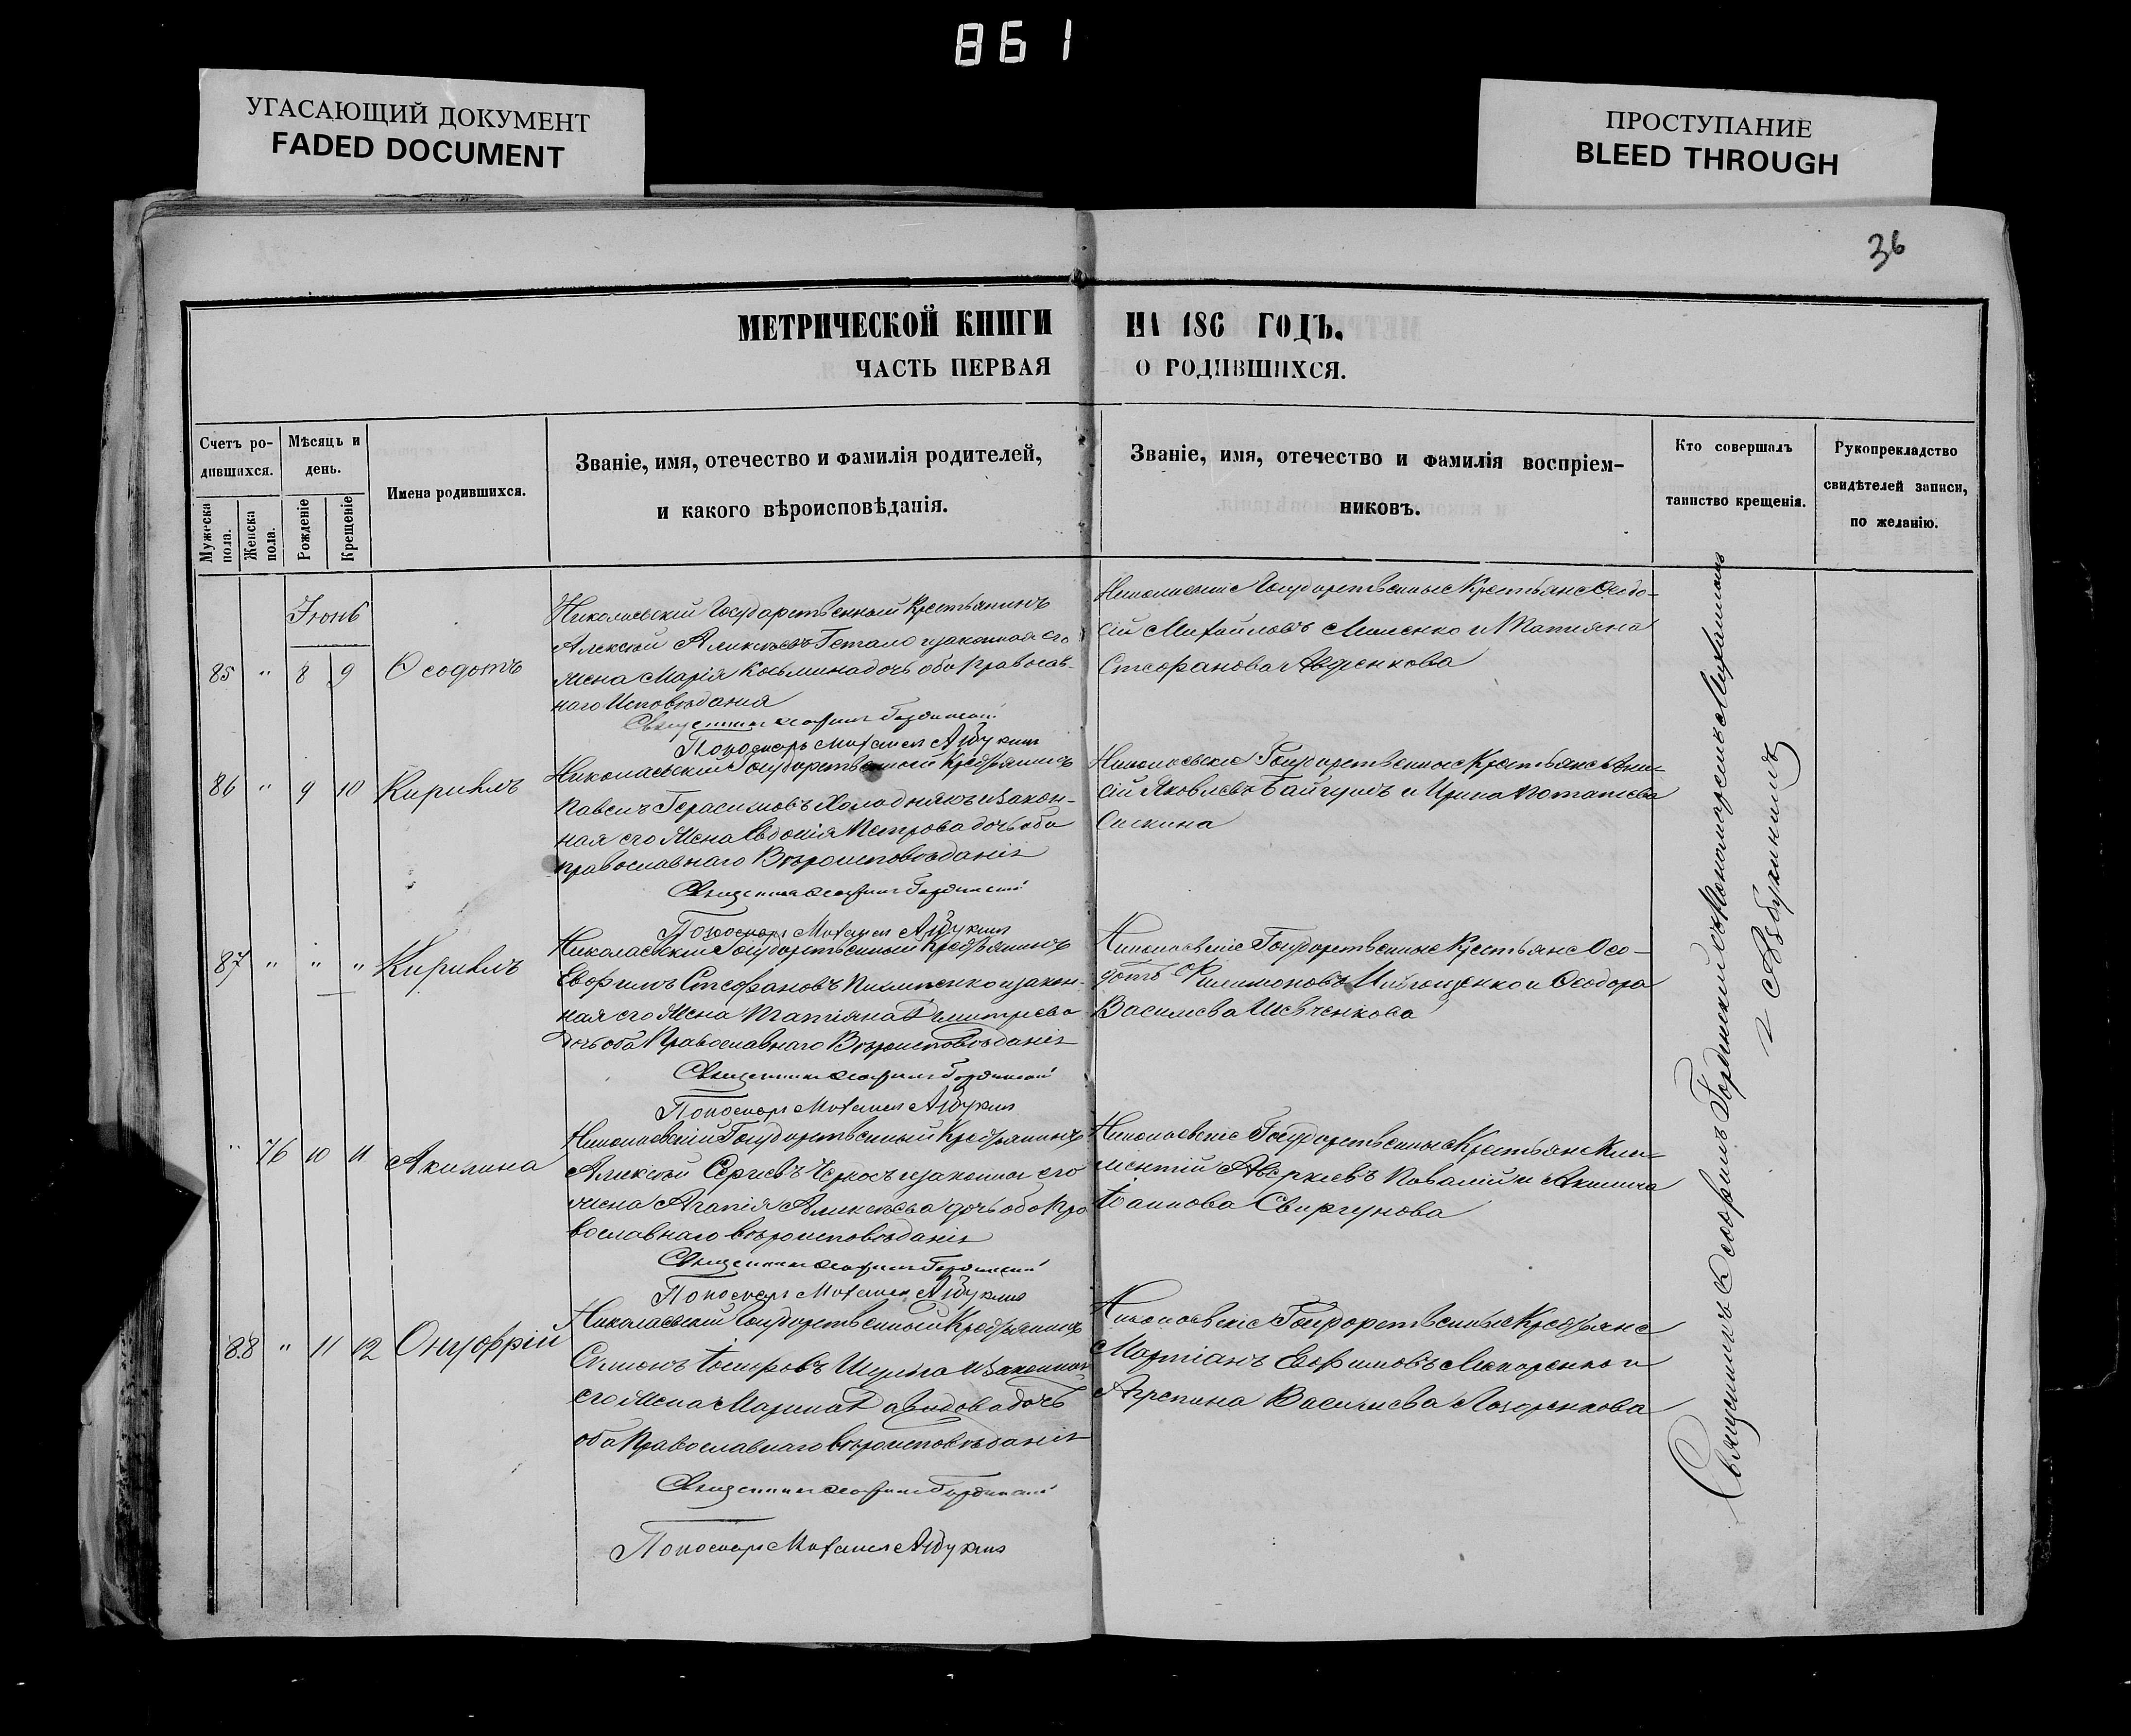 861
УГАСАЮЩИЙ ДОКУМЕНТ
FADED DOCUMENT
ПРОСТУПАНИЕ
BLEED THROUGH
36
МЕТРИЧЕСКОЙ КНИГИ НА 186 ГОДЪ.
ЧАСТЬ ПЕРВАЯ О РОДИВШИХСЯ.
Счетъ ро-
дившихся.
Мужеска
пола.
Женска
пола.
Мѣсяць и
день.
Рожденіе
Крещеніе
Имена родившихся.
Званіе, имя, отечество и фамилія родителей,
и какого вѣроисповѣданія.
Званіе, имя, отечество и фамилія воспріем-
никовъ.
Кто совершалъ
таинство крещенія.
Рукоприкладство
свидѣтелей записи,
по желанію.
Іюнь
85 " 8 9 Ѳеодотъ
Николаевскій Государственный Крестьянинъ
Алексѣй Алексѣевъ и законная его
жена Марія Козьмина дочь оба православ-
наго Исповѣданія
Священникъ Ѳеофилъ Гординскій
Пономарь Михаилъ Азбукинъ
Николаевскіе Государственные Крестьяне Ѳеодо-
сій Михайловъ и Татіана
Стефанова
86 " 9 10 Кириллъ
Николаевскій Государственный Крестьянинъ
Павелъ Герасимовъ Холоднякъ и закон-
ная его жена Евдокія Петрова дочь оба
православнаго Вѣроисповѣданія
Священникъ Ѳеофилъ Гординскій
Пономарь Михаилъ Азбукинъ
Николаевскіе Государственные Крестьяне
Яковлевъ и Ирина
87 " " " Кириллъ
Николаевскій Государственный Крестьянинъ
Евфимъ Стефановъ и закон-
ная его жена Татіана Димитріева
дочь оба Православнаго Вѣроисповѣданія
Священникъ Ѳеофилъ Гординскій
Пономарь Михаилъ Азбукинъ
Николаевскіе Государственные Крестьяне Ѳео-
дотъ Филимоновъ и Ѳеодора
Василіева Шевченкова
" 76 10 11 Акилина
Николаевскій Государственный Крестьянинъ
Алексѣй Сергіевъ и законная его
жена Агапія Алексѣева дочь оба Пра
вославнаго вѣроисповѣданія
Священникъ Ѳеофилъ Гординскій
Пономарь Михаилъ Азбукинъ
Николаевскіе Государственные Крестьяне Кли-
ментій Аверкіевъ и Акилина
Іоаннова Свиргунова
88 " 11 12 Онуфрій
Николаевскій Государственный Крестьянинъ
Симонъ Шульга и законная
его жена Марина Давидова дочь
оба Православнаго вѣроисповѣданія
Священникъ Ѳеофилъ Гординскій
Пономарь Михаилъ Азбукинъ
Николаевскіе Государственные Крестьяне
Мартіанъ Евфимовъ и
Агрепина Василиева Лазоренкова
Священникъ Ѳеофилъ Гординскій съ Пономаремъ Михаиломъ
Азбукинымъ